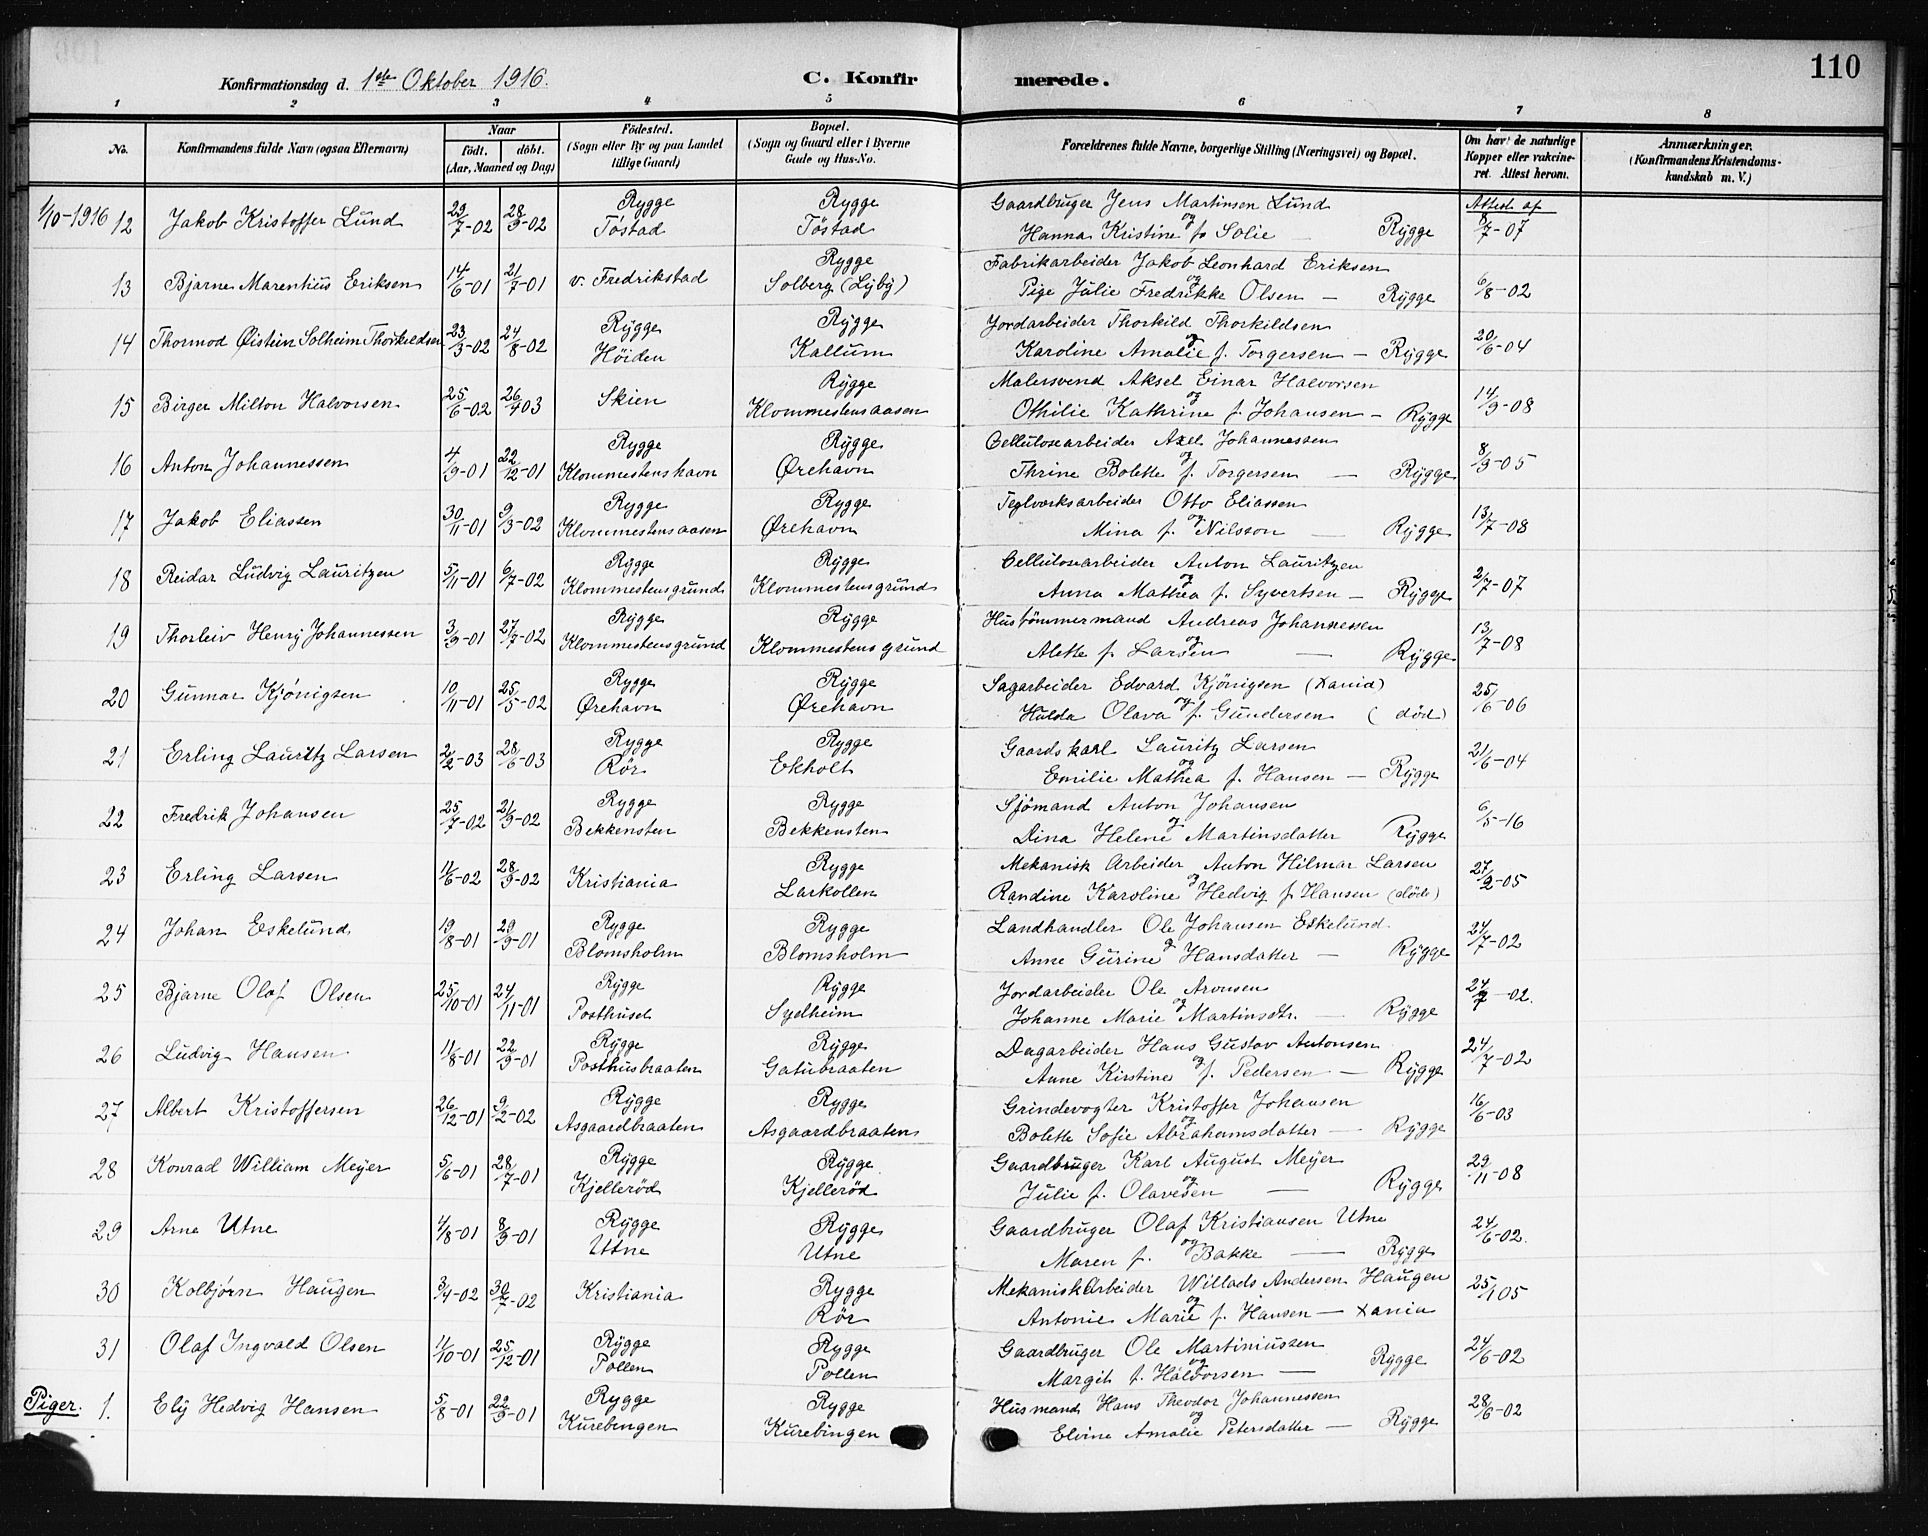 110
Konfirmationsdag d. 1ste Oktober 1916. C. Konfirmerede.
1 2 3 4 5 6 7 8
No. Konfirmandens fulde Navn (ogsaa Efternavn) Naar födt. döbt. (Aar, Maaned og Dag) Födested. (Sogn eller By og paa Landet tillige Gaard) Bopæl. (Sogn og Gaard eller i Byerne Gade og Hus-No. Forældrenes fulde Navne, borgerlige Stilling (Næringsvei) og Bopæl. Om havt de naturlige Kopper eller vakcineret. Attest herom. Anmærkninger. (Konfirmandens Kristendomskundskab m. V.)
1/10-1916 12 Jakob Kristoffer Lund 29/7-02 28/9-02 Rygge Töstad Rygge Töstad Gaardbruger Jens Martinsen Lund og Hanna Kristine f. Solie Rygge Attest af 8/7-07
13 Bjarne Marentius Eriksen 14/6-01 21/7-01 v. Fredrikstad Rygge Solberg (Lyby) Fabrikarbeider Jakob Leonhard Eriksen og Pige Julie Fredrikke Olsen — Rygge 6/8-02
14 Thormod Øistein Solheim Thorkildsen 23/3-02 24/8-02 Rygge Höiden Rygge Kallum Jordarbeider Thorkild Thorkildsen og Karoline Amalie f. Torgersen — Rygge 20/6-04
15 Birger Milton Halvorsen 25/6-02 26/4 03 Skien Rygge Klommestensaasen Malersvend Aksel Einar Halvorsen og Othilie Kathrine f. Johansen — Rygge 14/9-08
16 Anton Johannessen 4/9-01 22/12-01 Rygge Klommestenshavn Rygge Ørehavn Cellulosearbeider Axel Johannessen og Thrine Bolette f. Torgersen — Rygge 8/9-05
17 Jakob Eliassen 30/11-01 9/3-02 Rygge Klommestensaasen Rygge Ørehavn Teglværksarbeider Otto Eliassen og Mina f. Nilsson — Rygge 13/7-08
18 Reidar Ludvig Lauritzen 5/11-01 6/7-02 Rygge Klommestensgrund Rygge Klommestensgrund Cellulosearbeider Anton Lauritzen og Anna Mathea f. Syvertsen — Rygge 2/7-07
19 Thorleiv Henry Johannessen 3/9-01 27/7-02 Rygge Klommestensgrund Rygge Klommestensgrund Hustömmermand Andreas Johannessen og Alette f. Larsen — Rygge 13/7-08
20 Gunnar Kjönigsen 10/11-01 25/5-02 Rygge Ørehavn Rygge Ørehavn Sagarbeider Edvard Kjönigsen (Xania) og Hulda Olava f. Gundersen (död) 25/6-06
21 Erling Lauritz Larsen 2/2-03 28/6-03 Rygge Rör Rygge Ekholt Gaardskarl Lauritz Larsen og Emilie Mathea f. Hansen — Rygge 21/6-04
22 Fredrik Johansen 25/7-02 21/9-02 Rygge Bekkensten Rygge Bekkensten Sjömand Anton Johansen og Dina Helene Martinsdatter Rygge 6/5-16
23 Erling Larsen 11/6-02 28/9-02 Kristiania Rygge Larkollen Mekanisk Arbeider Anton Hilmar Larsen og Randine Karoline Hedvig f. Hansen (döde) 27/2-05
24 Johan Eskelund 19/8-01 29/9-01 Rygge Blomsholm Rygge Blomsholm Landhandler Ole Johansen Eskelund og Anne Gurine Hansdatter — Rygge 24/7-02
25 Bjarne Olaf Olsen 25/10-01 24/11-01 Rygge Posthuset Rygge Sydheim Jordarbeider Ole Arvesen og Johanne Marie Martinsdtr. — Rygge 24/7-02.
26 Ludvig Hansen 11/8-01 22/9-01 Rygge Posthusbraaten Rygge Gatubraaten Dagarbeider Hans Gustav Antonsen og Anne Kirstine f. Pedersen — Rygge 24/7-02
27 Albert Kristoffersen 26/12-01 9/2-02 Rygge Asgaardbraaten Rygge Asgaardbraaten Grindevogter Kristoffer Johansen og Bolette Sofie Abrahamsdatter — Rygge 16/6-03
28 Konrad William Meyer 5/6-01 28/7-01 Rygge Kjelleröd Rygge Kjelleröd Gaardbruger Karl August Meyer og Julie f. Olavesen — Rygge 29/11-08
29 Arne Utne 4/8-01 8/9-01 Rygge Uttne Rygge Utne Gaardbruger Olaf Kristiansen Utne og Maren f. Bakke — Rygge 24/6-02.
30 Kolbjørn Haugen 3/4-02 30/7-02 Kristiania Rygge Rör Mekanisk Arbeider Willads Andersen Haugen og Antonie Marie f. Hansen — Xania 25/1 05
31 Olaf Ingvald Olsen 11/10-01 25/12-01 Rygge Pollen Rygge Pollen Gaardbruger Ole Martiniussen og Margit f. Halvorsen — Rygge 24/6-02
Piger. 1. Ely Hedvig Hansen 5/8-01 22/9-01 Rygge Kurebingen Rygge Kurebingen Husmand Hans Theodor Johannessen og Elvine Amalie Petersdatter — Rygge 28/6-02